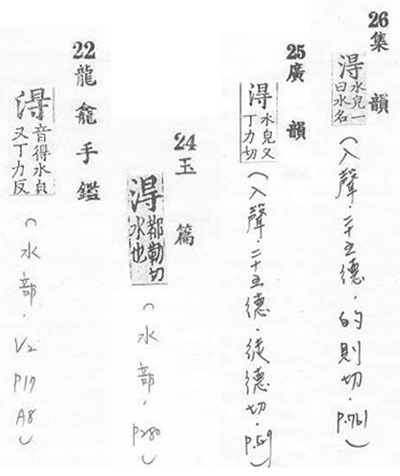 26集韻
淂
水皃一
曰水名
(入聲.二十五德.的則切.P.761)
25廣韻
淂
水皃又
丁力切
(入聲.二十五德.徒德切.P.529)
24玉篇
淂
都勒切
水也
(水部.P280)
22龍龕手鑑
淂
音得水貞
又丁力反
(水部.V2 P17 A8)